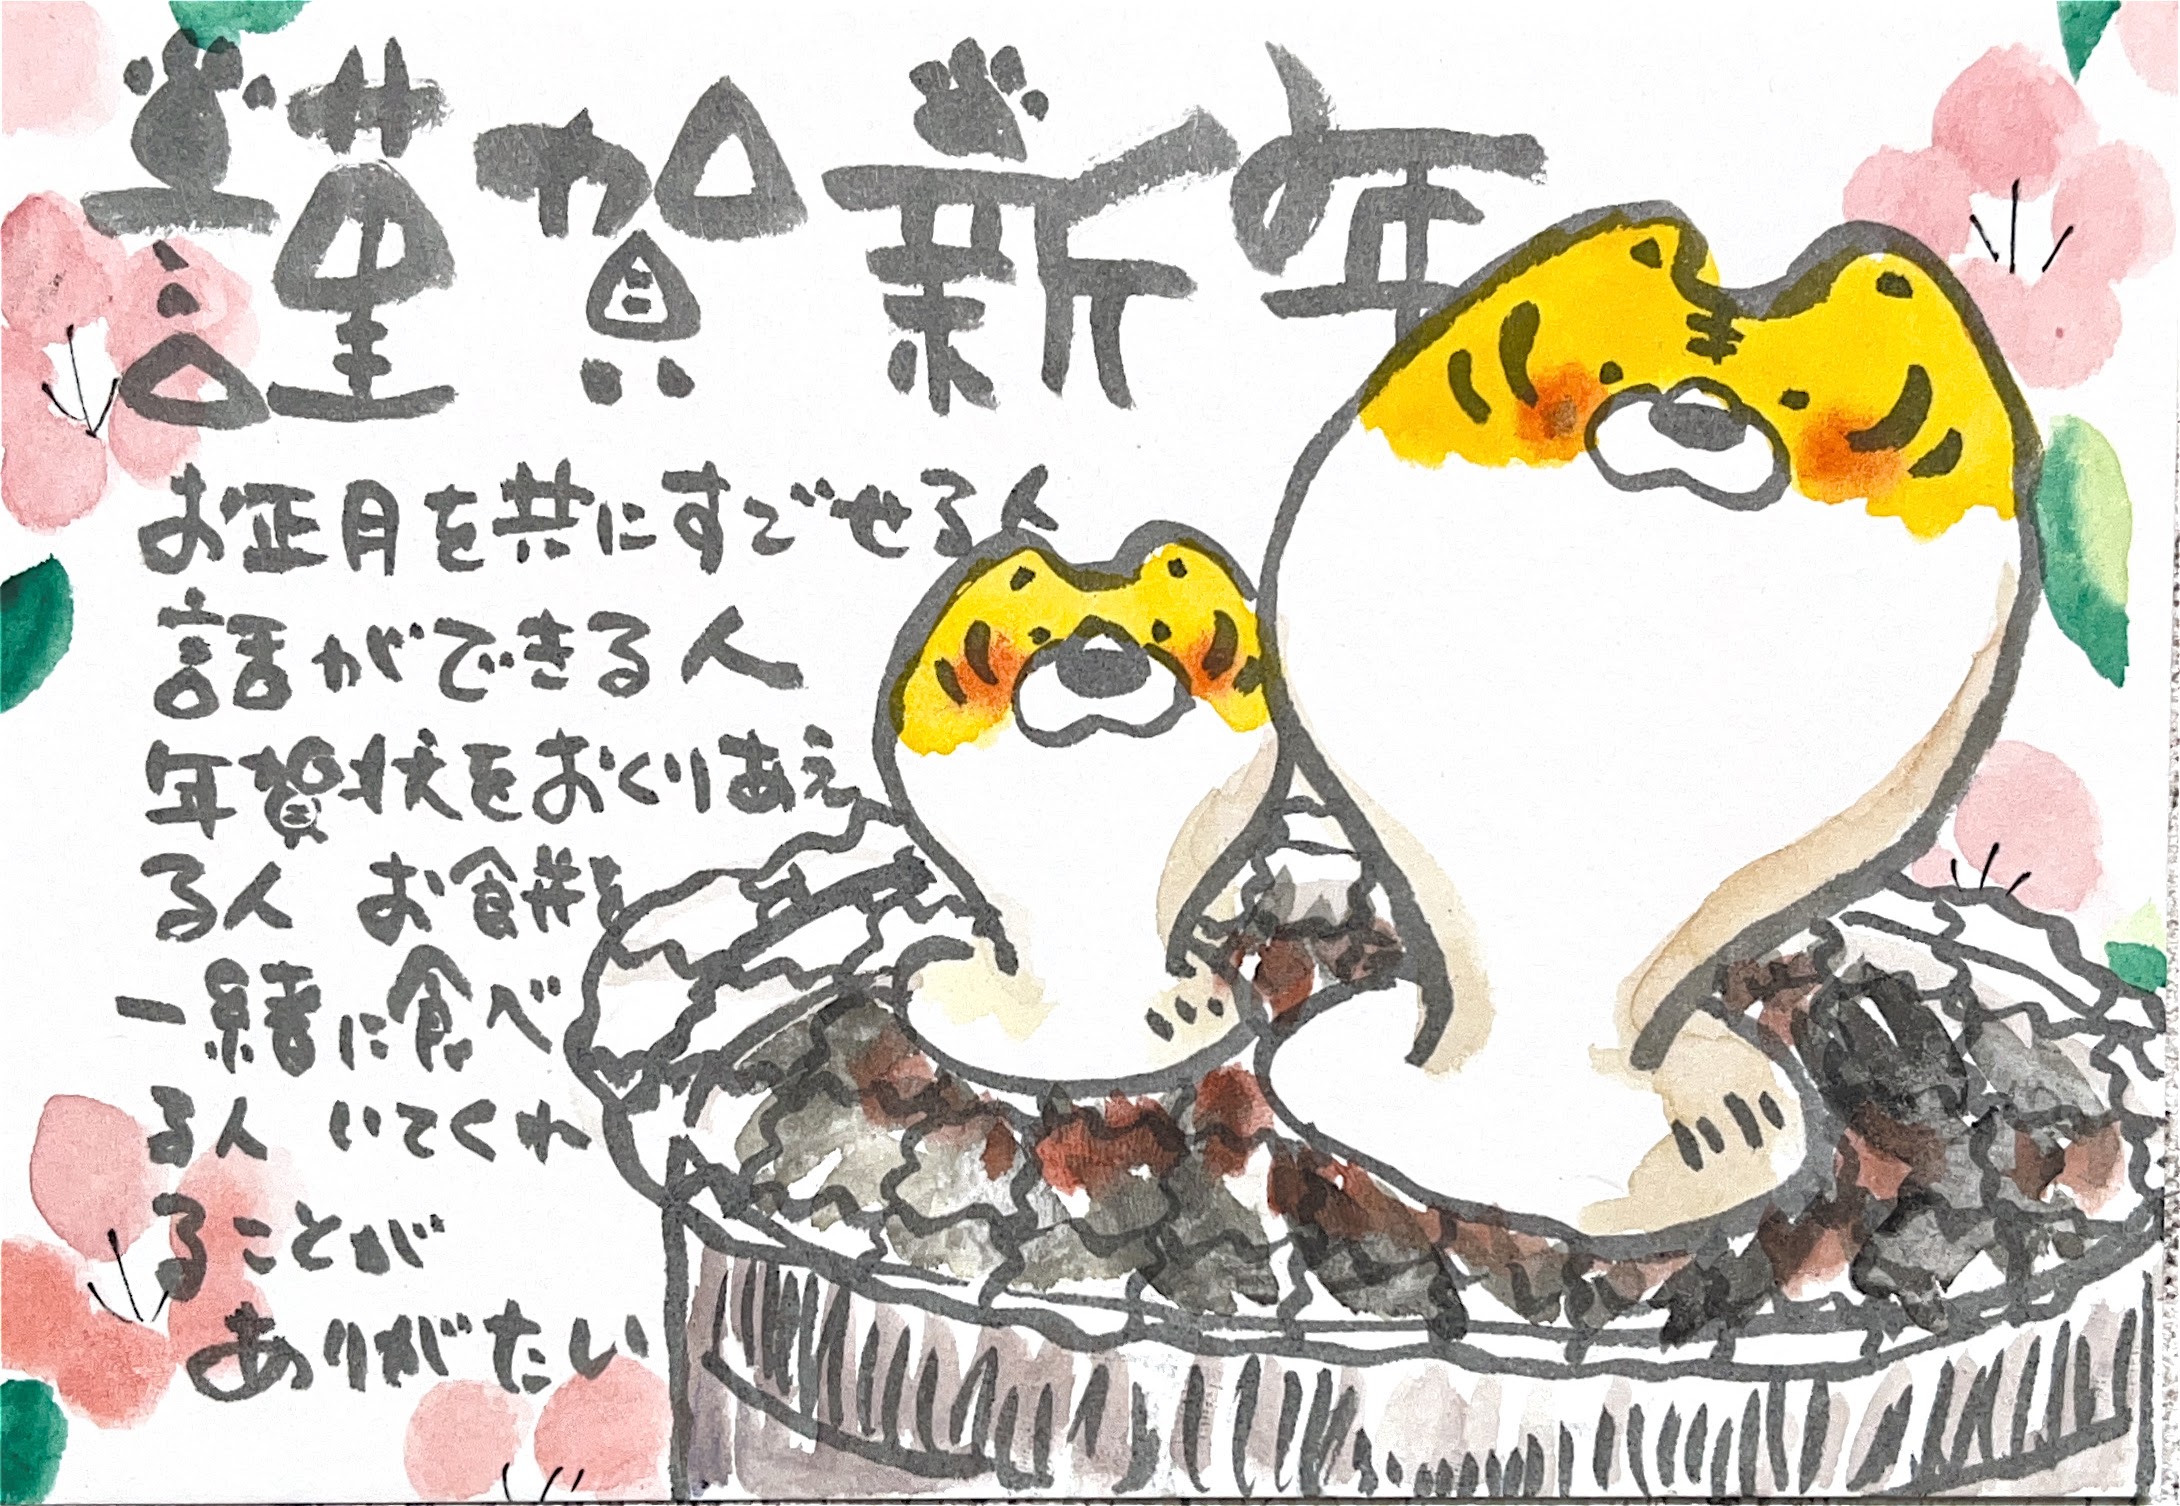 謹賀新年
お正月を共にすごせる人
話ができる人
年賀状をおくりあえ
る人 お餅を
一緒に食べ
る人 いてくれ
ることが
ありがたい